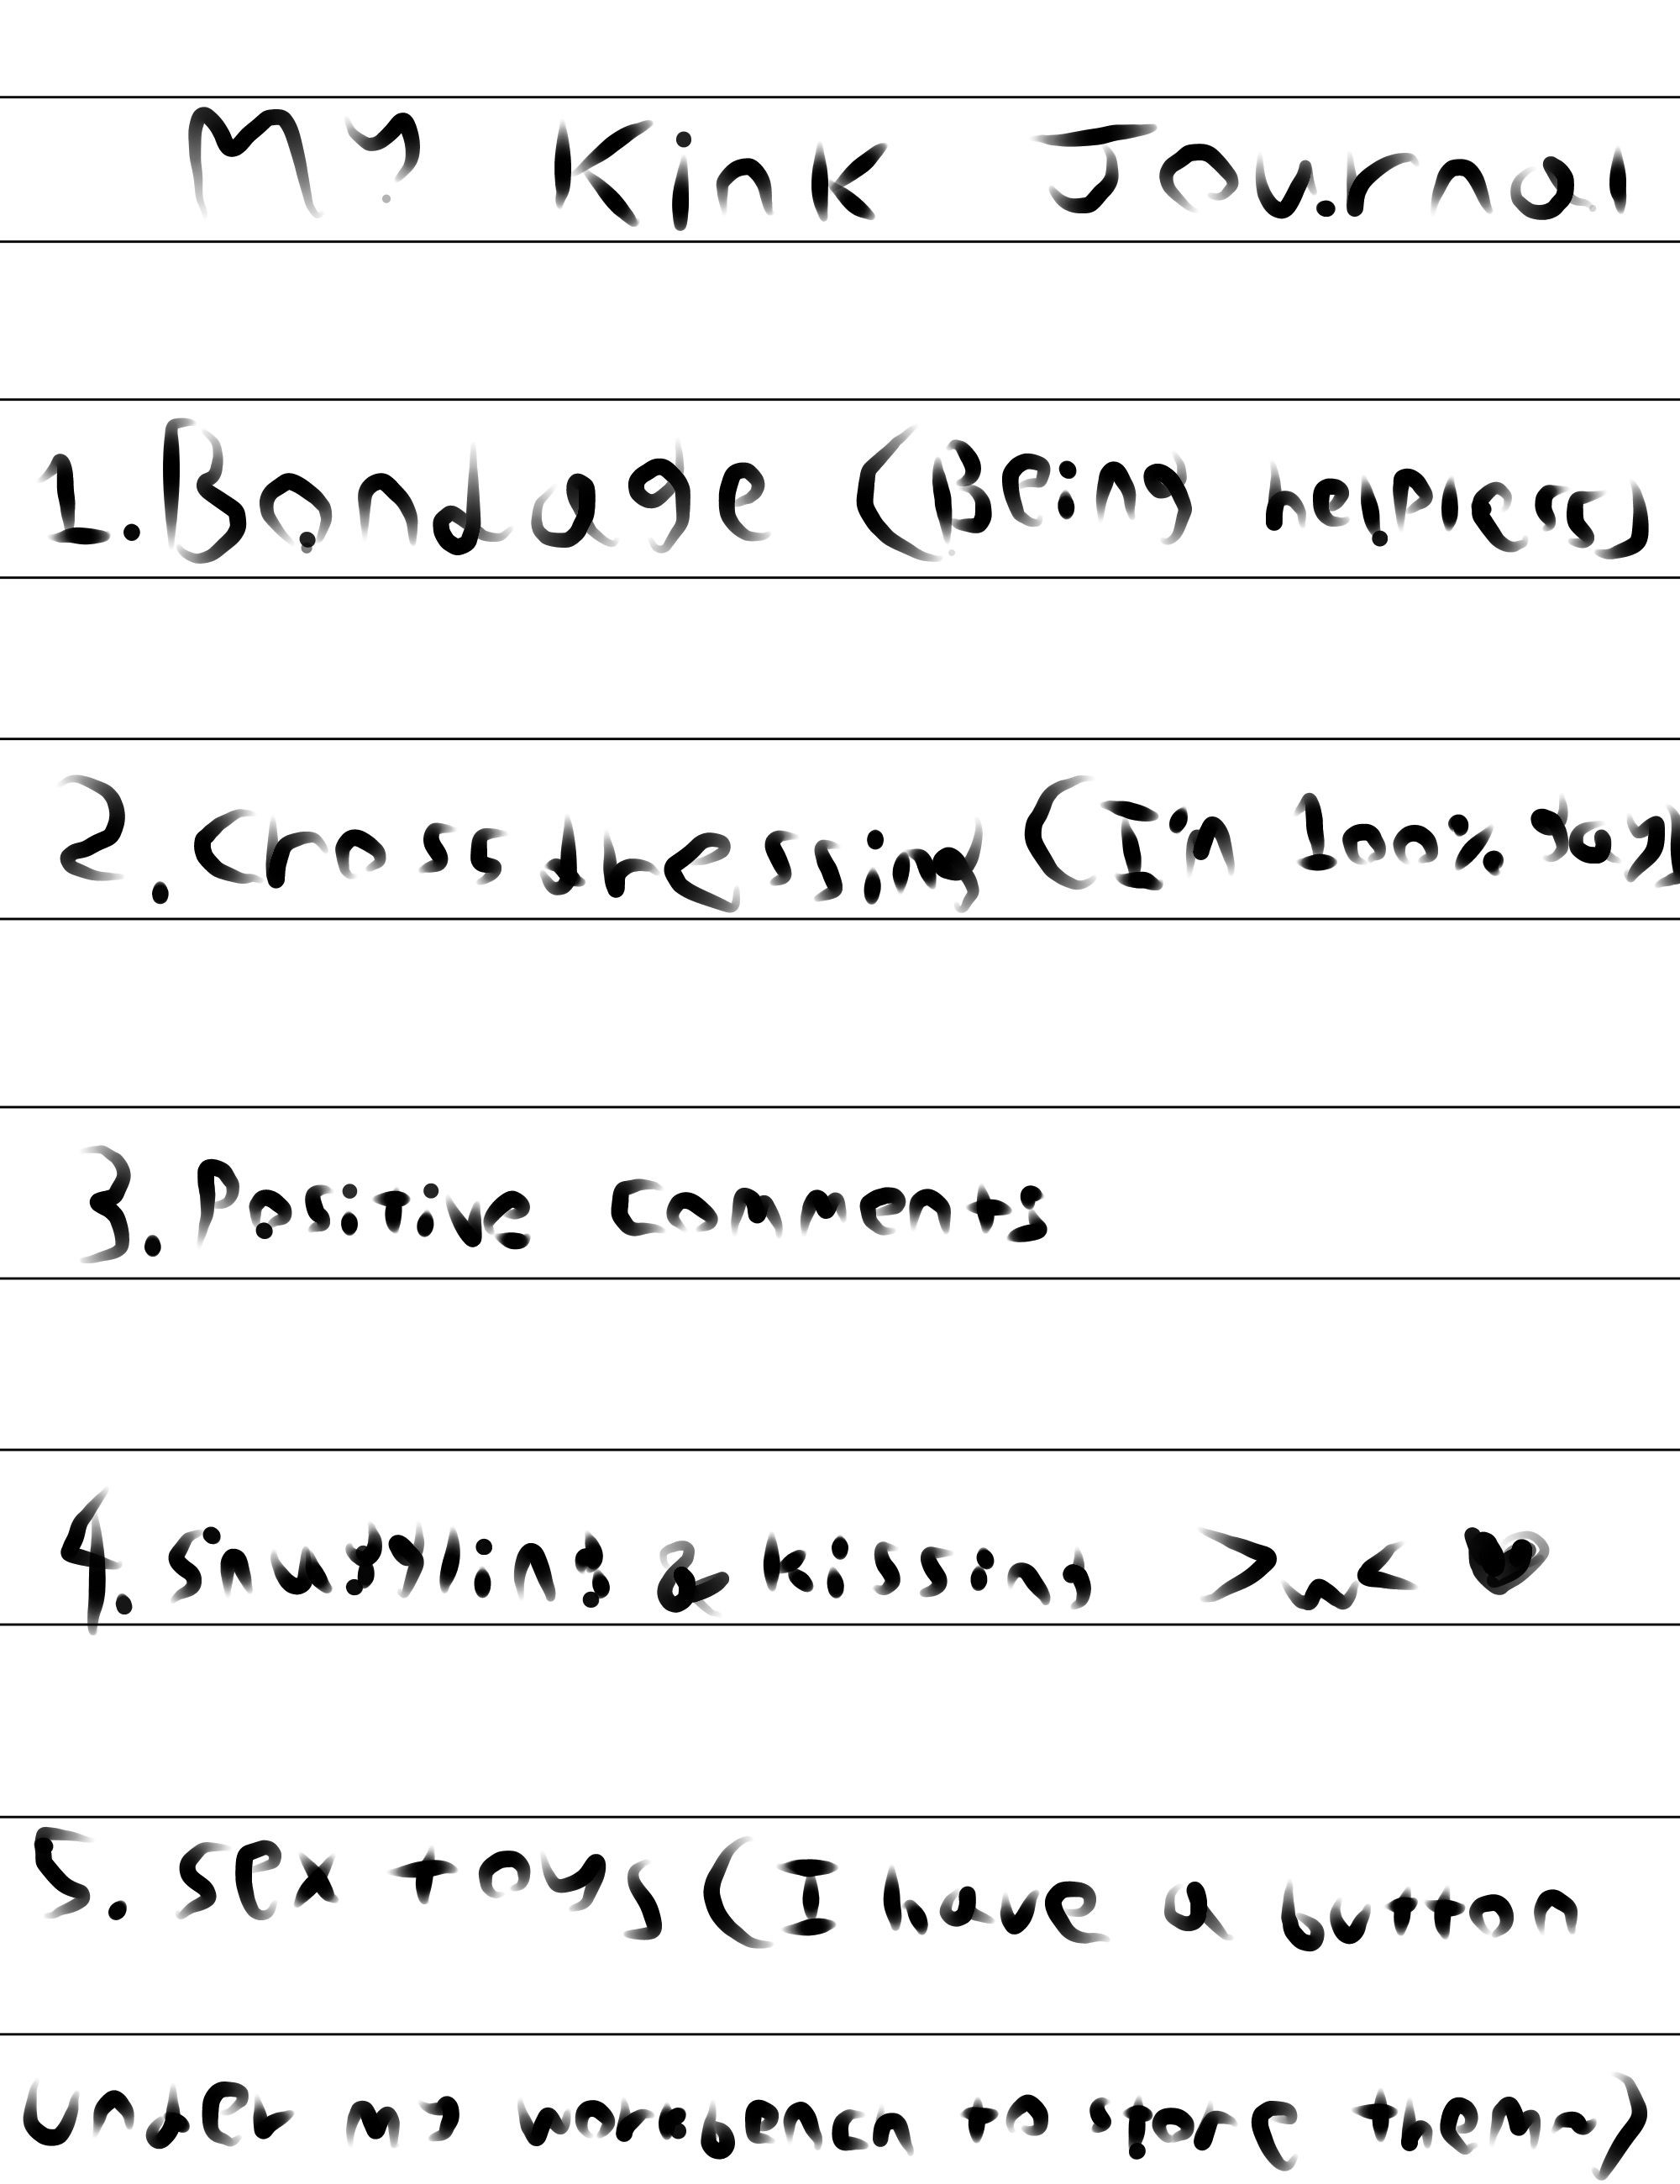 My Kink Journal
1. Bondage (Being helpless)
2. Crossdressing (I'm 100% gay)
3. Positive Comments
4. Snuggling & kissing >w< ♥
5. sex toys (I have a button
under my workbench to store them)